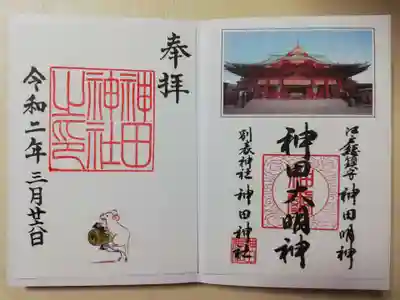 江戸総鎮守 神田明神
神田大明神
別表神社 神田神社
奉拝
神田
神社
之印
令和二年 三月廿六日